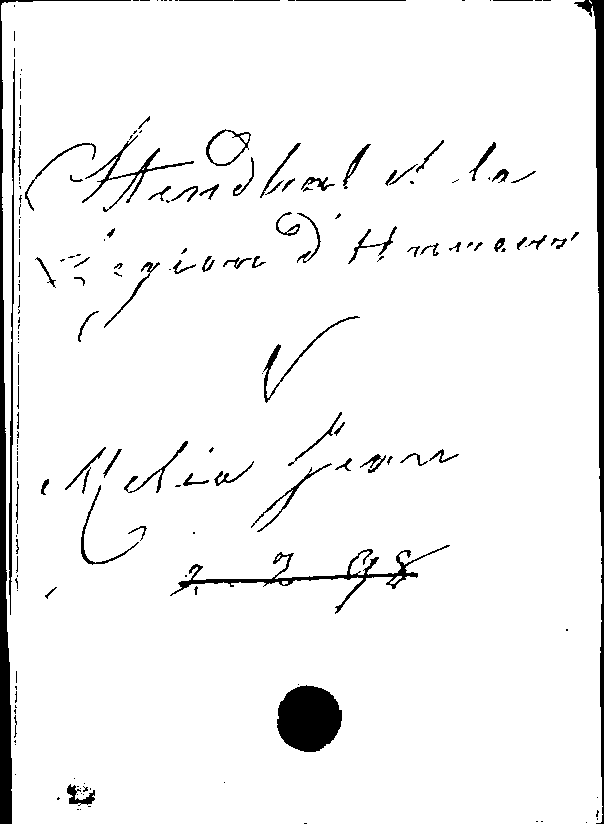 Stendhal et la
Légion d'Honneur
V
Mélia Jean
2 298